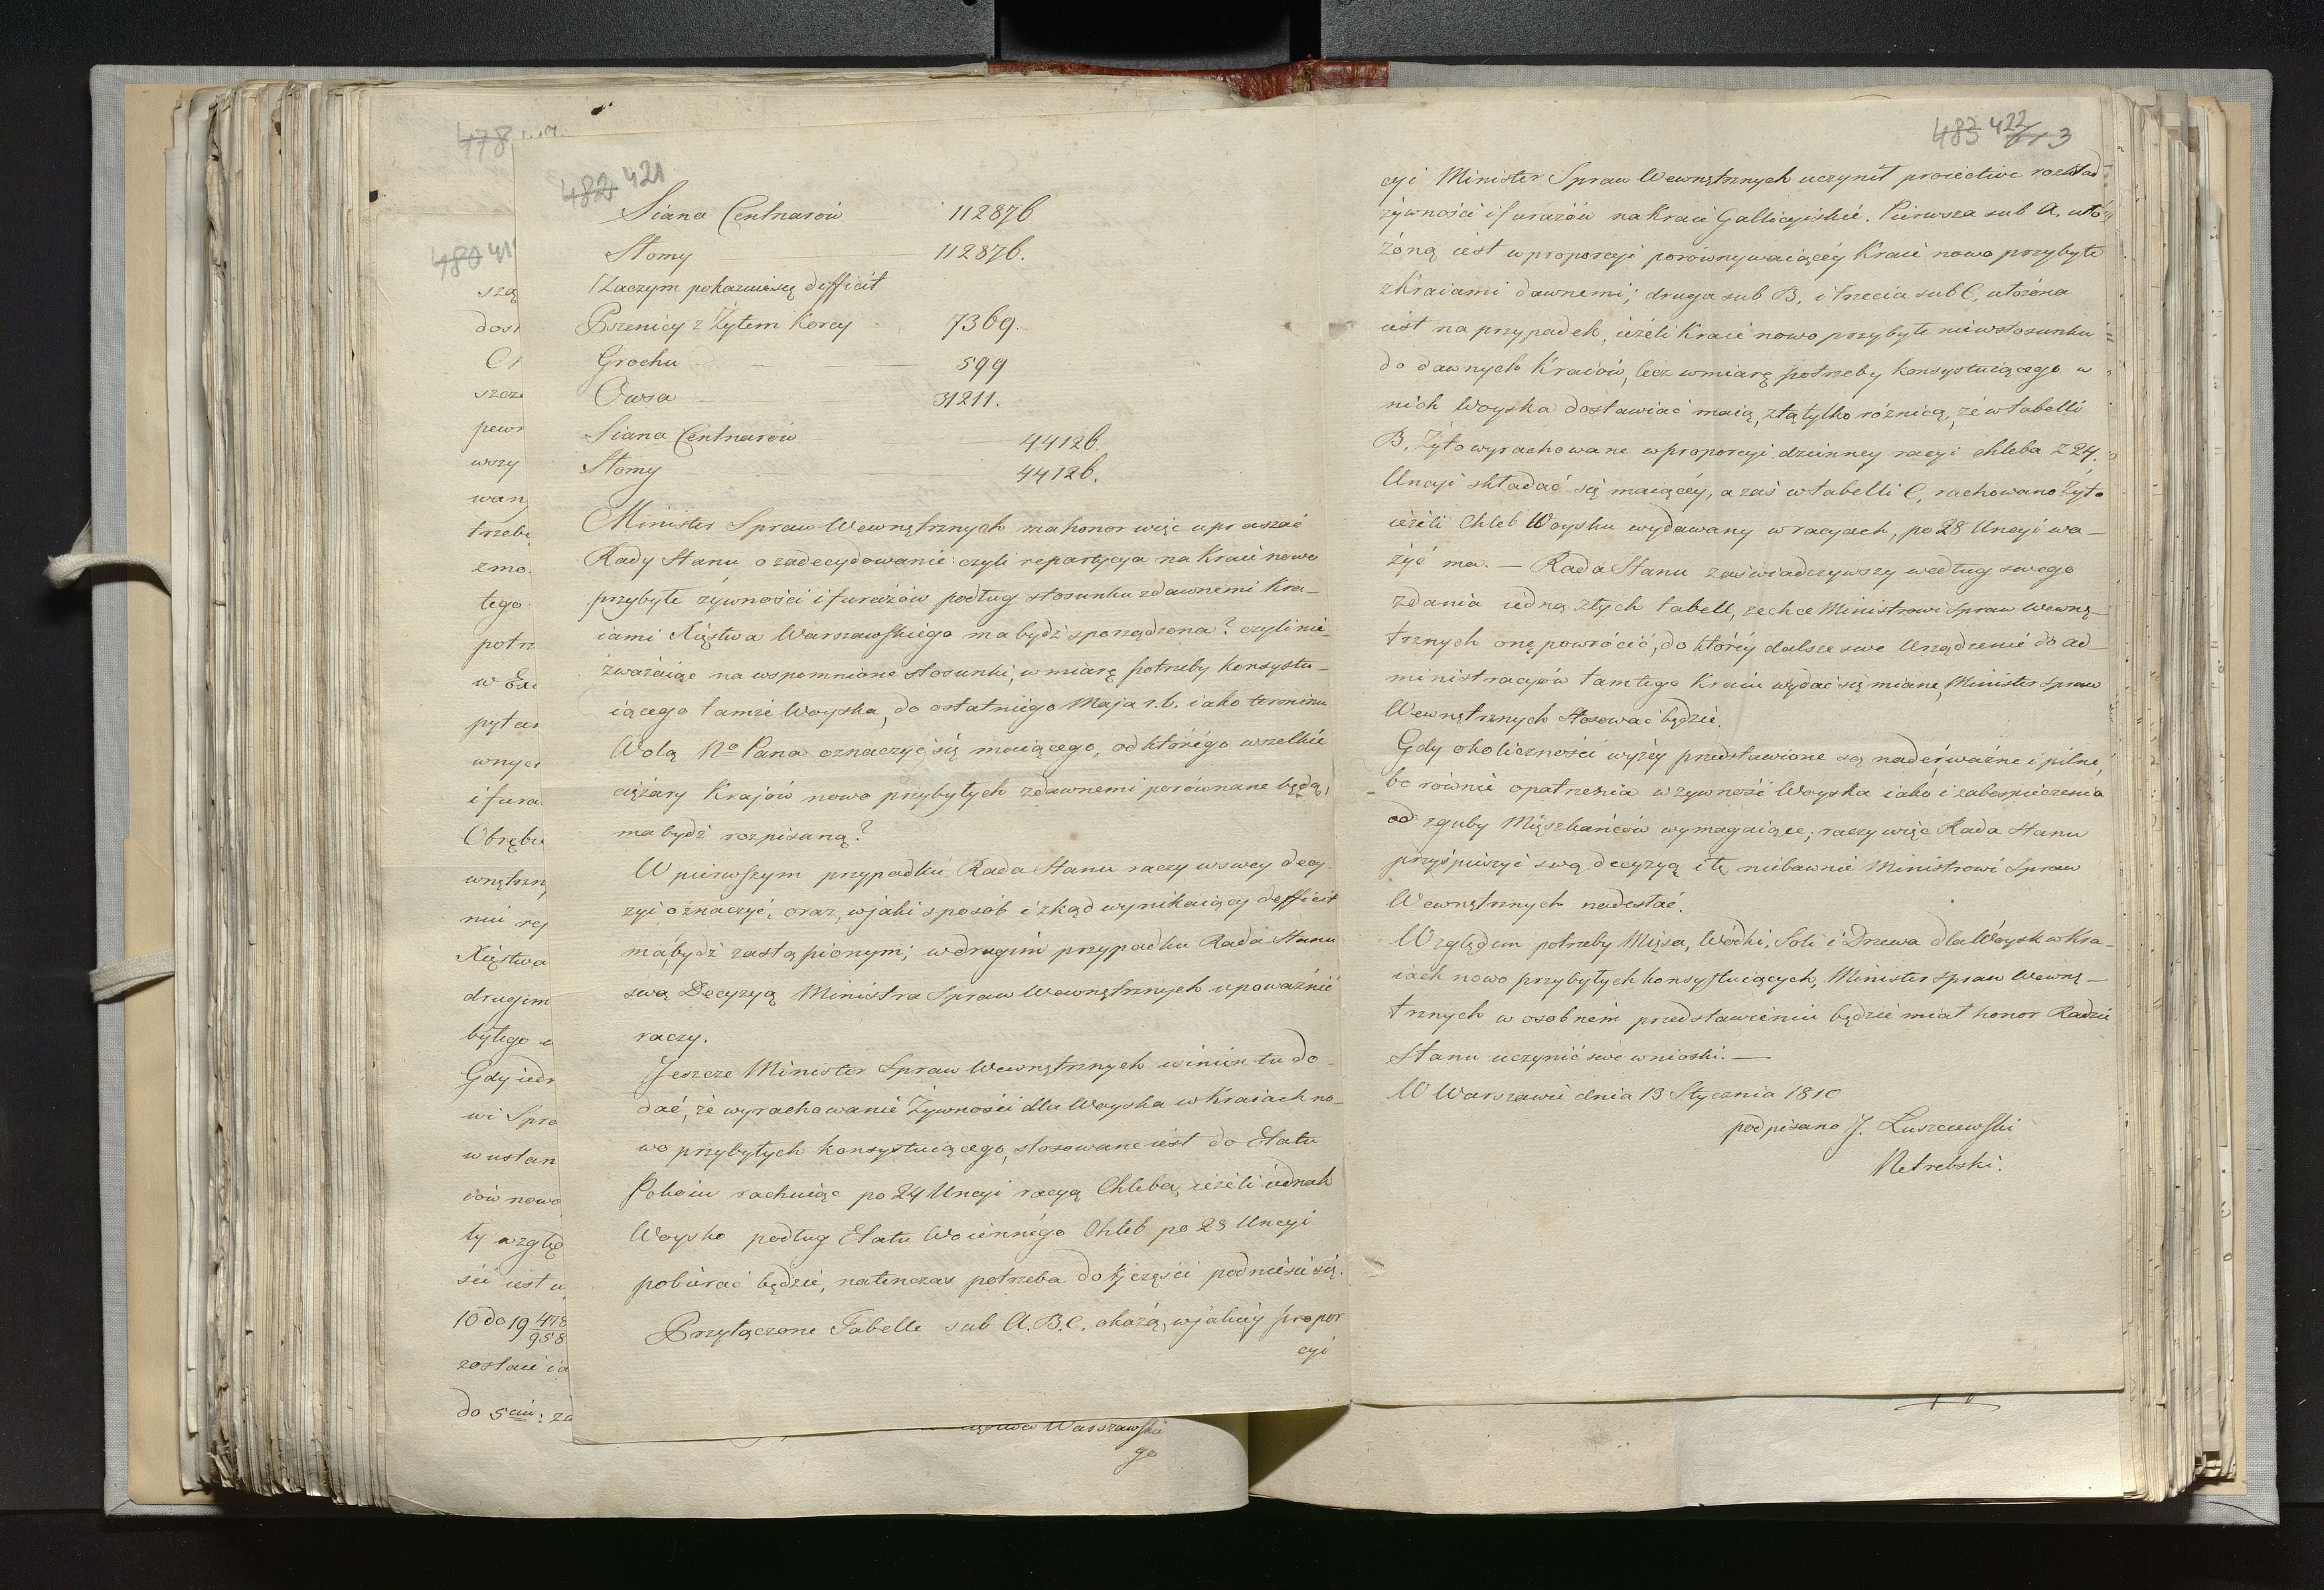 482 421
Siana Centnarów 112876
Słomy 112876.
Zaczym pokazuie się defficit
Pszenicy z Żytem Korcy 7369.
Grochu 599
Owsa 31211.
Siana Centnarów 44126.
Słomy 44126.
Minister Spraw Wewnętrznych ma honor więc upraszać
Rady Stanu o zadecydowanie: czyli repartycya na Kraie nowo
przybyłe żywności i furażów podług stosunku z dawnemi Kra-
iami Xięstwa Warszawskiego ma bydź sporządzona? czyli nie-
zważaiąc na wspomnione stosunki, w miarę potrzeby konsystu-
iącego tamże Woyska, do ostatniego Maja r.b. iako terminu
Wolą No Pana oznaczyć się maiącego, od którego wszelkie
ciężary Krajów nowo przybyłych z dawnemi porównane będą,
ma bydź rozpisaną?
W pierwszym przypadku Rada Stanu raczy w swey decy-
zyi oznaczyć, oraz, w jaki sposób i zkąd wynikaiący defficit
ma bydź zastąpionym; w drugim przypadku Rada Stanu
swą Decyzyą Ministra Spraw Wewnętrznych upoważnić
raczy.
Jeszcze Minister Spraw Wewnętrznych winien tu do-
dać, że wyrachowanie Żywności dla Woyska w Kraiach no-
wo przybyłych konsystuiącego, stosowane iest do Etatu
Pokoiu rachuiąc po 24 Uncyi racyą Chleba, ieżeli iednak
Woysko podług Etatu Woiennego Chleb po 28 Uncyi
pobierać będzie, natenczas potrzeba do części podniesie się.
Przyłączone Tabelle sub A. B. C. okażą, w jakiey propor
cyi
483 422 3
cyi Minister Spraw Wewnętrznych uczynił proiective rozkład
żywności i furażów na Kraie Gallicyiskie. Pierwsza sub A, uło
żoną iest w proporcyi porównywaiącéy Kraie nowo przybyłe
z Kraiami dawnemi; druga sub B. i trzecia sub C, ułożona
iest na przypadek, ieżeli Kraie nowo przybyłe nie w stosunku
do dawnych Kraiów, lecz w miarę potrzeby konsystuiącego w
nich Woyska dostawiać maią, z tą tylko różnicą, że w tabelli
B. Żyto wyrachowane w proporcyi dzienney racyi chleba z 24.
Uncyi składać się maiącéy, a zaś w tabelli C, rachowano Żyto
ieżeli Chleb Woysku wydawany w racyach, po 28 Uncyi wa-
żyć ma. — Rada Stanu zaświadczywszy według swego
zdania iedną z tych tabell, zechce Ministrowi Spraw Wewnę-
trznych onę powrócić, do któréy dalsze swe Urządzenie do ad-
ministracyów tamtego Kraiu wydać się miane, Minister Spraw
Wewnętrznych stosować będzie.
Gdy okoliczności wyżéy przedstawione są nader ważne i pilne,
bo równie opatrzenia w żywność Woyska iako i zabespieczenia
od zguby Mięszkańców wymagaiące; raczy więc Rada Stanu
przyśpieszyć swą decyzyą i tę niebawnie Ministrowi Spraw
Wewnętrznych nadesłać.
Względem potrzeby Mięsa, Wódki, Soli i Drzewa dla Woysk w Kra-
iach nowo przybyłych konsystuiących, Minister Spraw Wewnę-
trznych w osobnem przedstawieniu będzie miał honor Radzie
Stanu uczynić swe wnioski. —
W Warszawie dnia 13 Stycznia 1810
podpisano J. Łuszczewski
Netrebski.
478
480
szą
trzebę
tego
pytan
i fura
Xięstwa
drugim
byłego
w ustan
10 do 19 478
958
Warszawskie
go